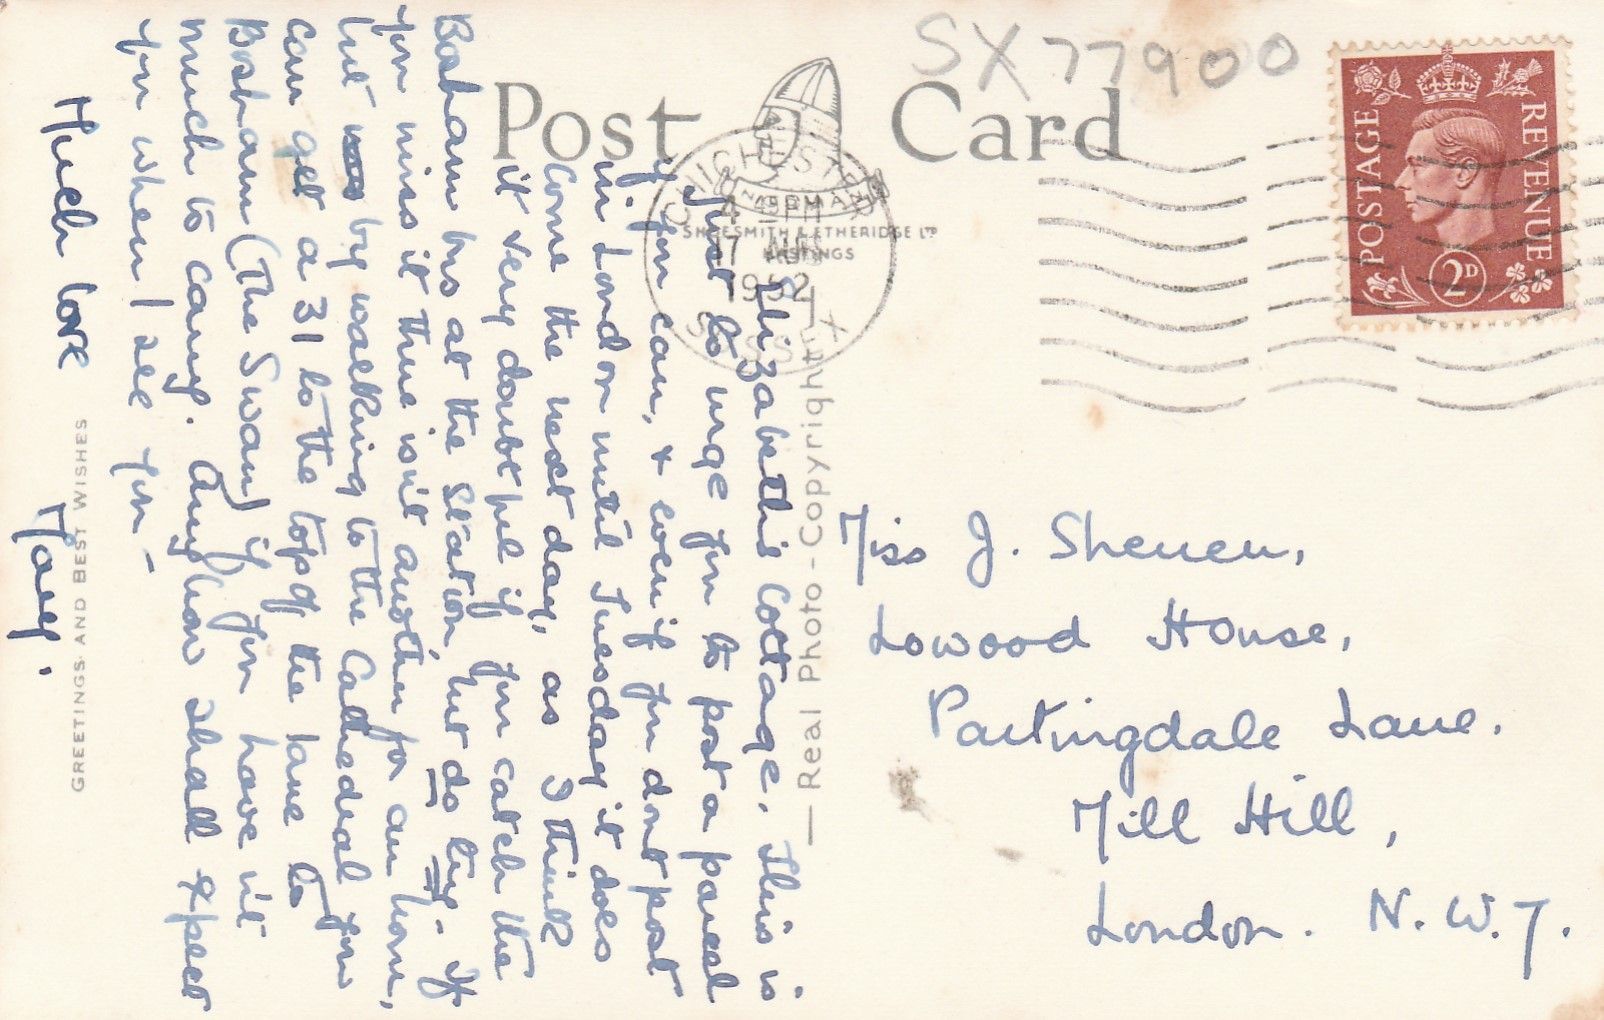 Post Card
SX77900
NORMAN
SHOESMITH & ETHERIDGE LTD
HASTINGS
CHICHESTER
4 - PM
17 AUG
1952
SUSSEX
POSTAGE
REVENUE
2D
— Real Photo - Copyright —
GREETINGS AND BEST WISHES
Elizabethi Cottage. This is
just to urge you to post a parcel
if you can, & even if you dont post
in London until Tuesday it does
come the next day, as I think
it very doubtful if you catch the
Bosham bus at the Station, but do try. If
you miss it there isn't another for an hour,
but by walking to the Cathedral you
can get a 31 to the top of the lane to
Bosham (The Swan) if you haven't
much to carry. Anyhow shall expect
you when I see you -
Much love
Mary.
Miss J. Sheuen,
Lowood House,
Partingdale Lane.
Mill Hill,
London. N.W.7.